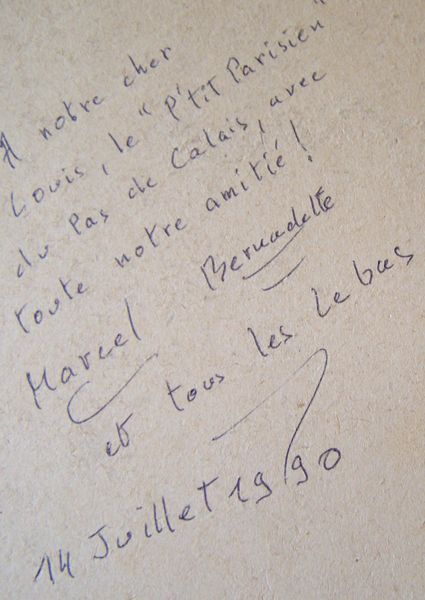 A notre cher
Louis, le "P'tit Parisien"
du Pas de Calais, avec
toute notre amitié!
Marcel Bernadette
et tous les Lebas
14 Juillet 1990